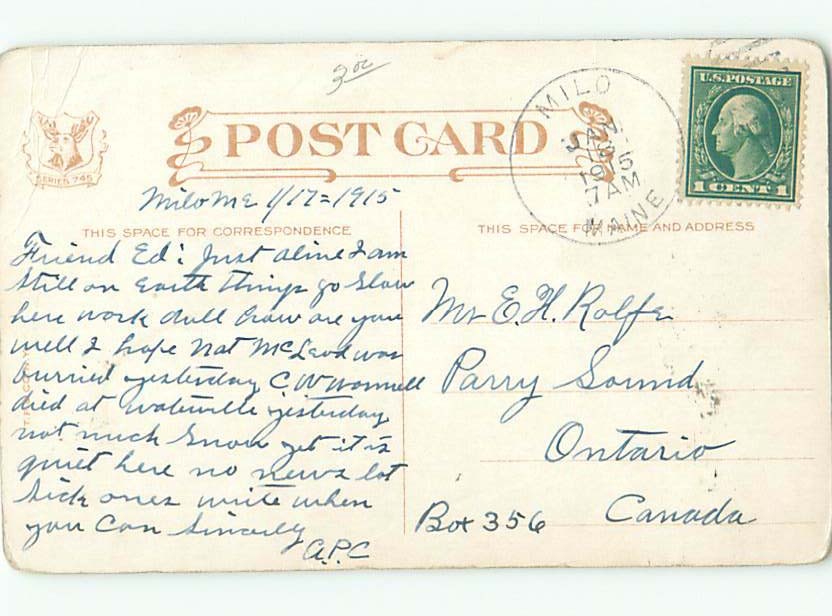 3oc
POST CARD
SERIES 745
MILO
JAN
1915
7 AM
MAINE
U.S. POSTAGE
1 CENT 1
Milo Me 1/17=1915
THIS SPACE FOR CORRESPONDENCE
THIS SPACE FOR NAME AND ADDRESS
Friend Ed: Just a line I am
still on Earth things go slow
here work dull How are you
well I hope Nat McLeod was
burried yesterday C W Wormell
died at Waterville yesterday
not much Snow yet it is
quiet here no news lot
sick ones write when
you Can Sincerly
A.P.C
Mr E. H. Rolfe
Parry Sound
Ontario
Box 356 Canada